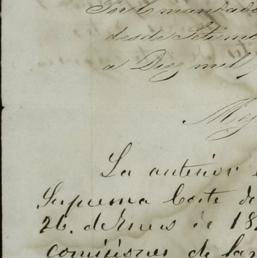 Por lo mandado
desde Setiem
a Diez mil
Mej
La anterior
Suprema Corte de
26. de Enero de 18
comisiones de la